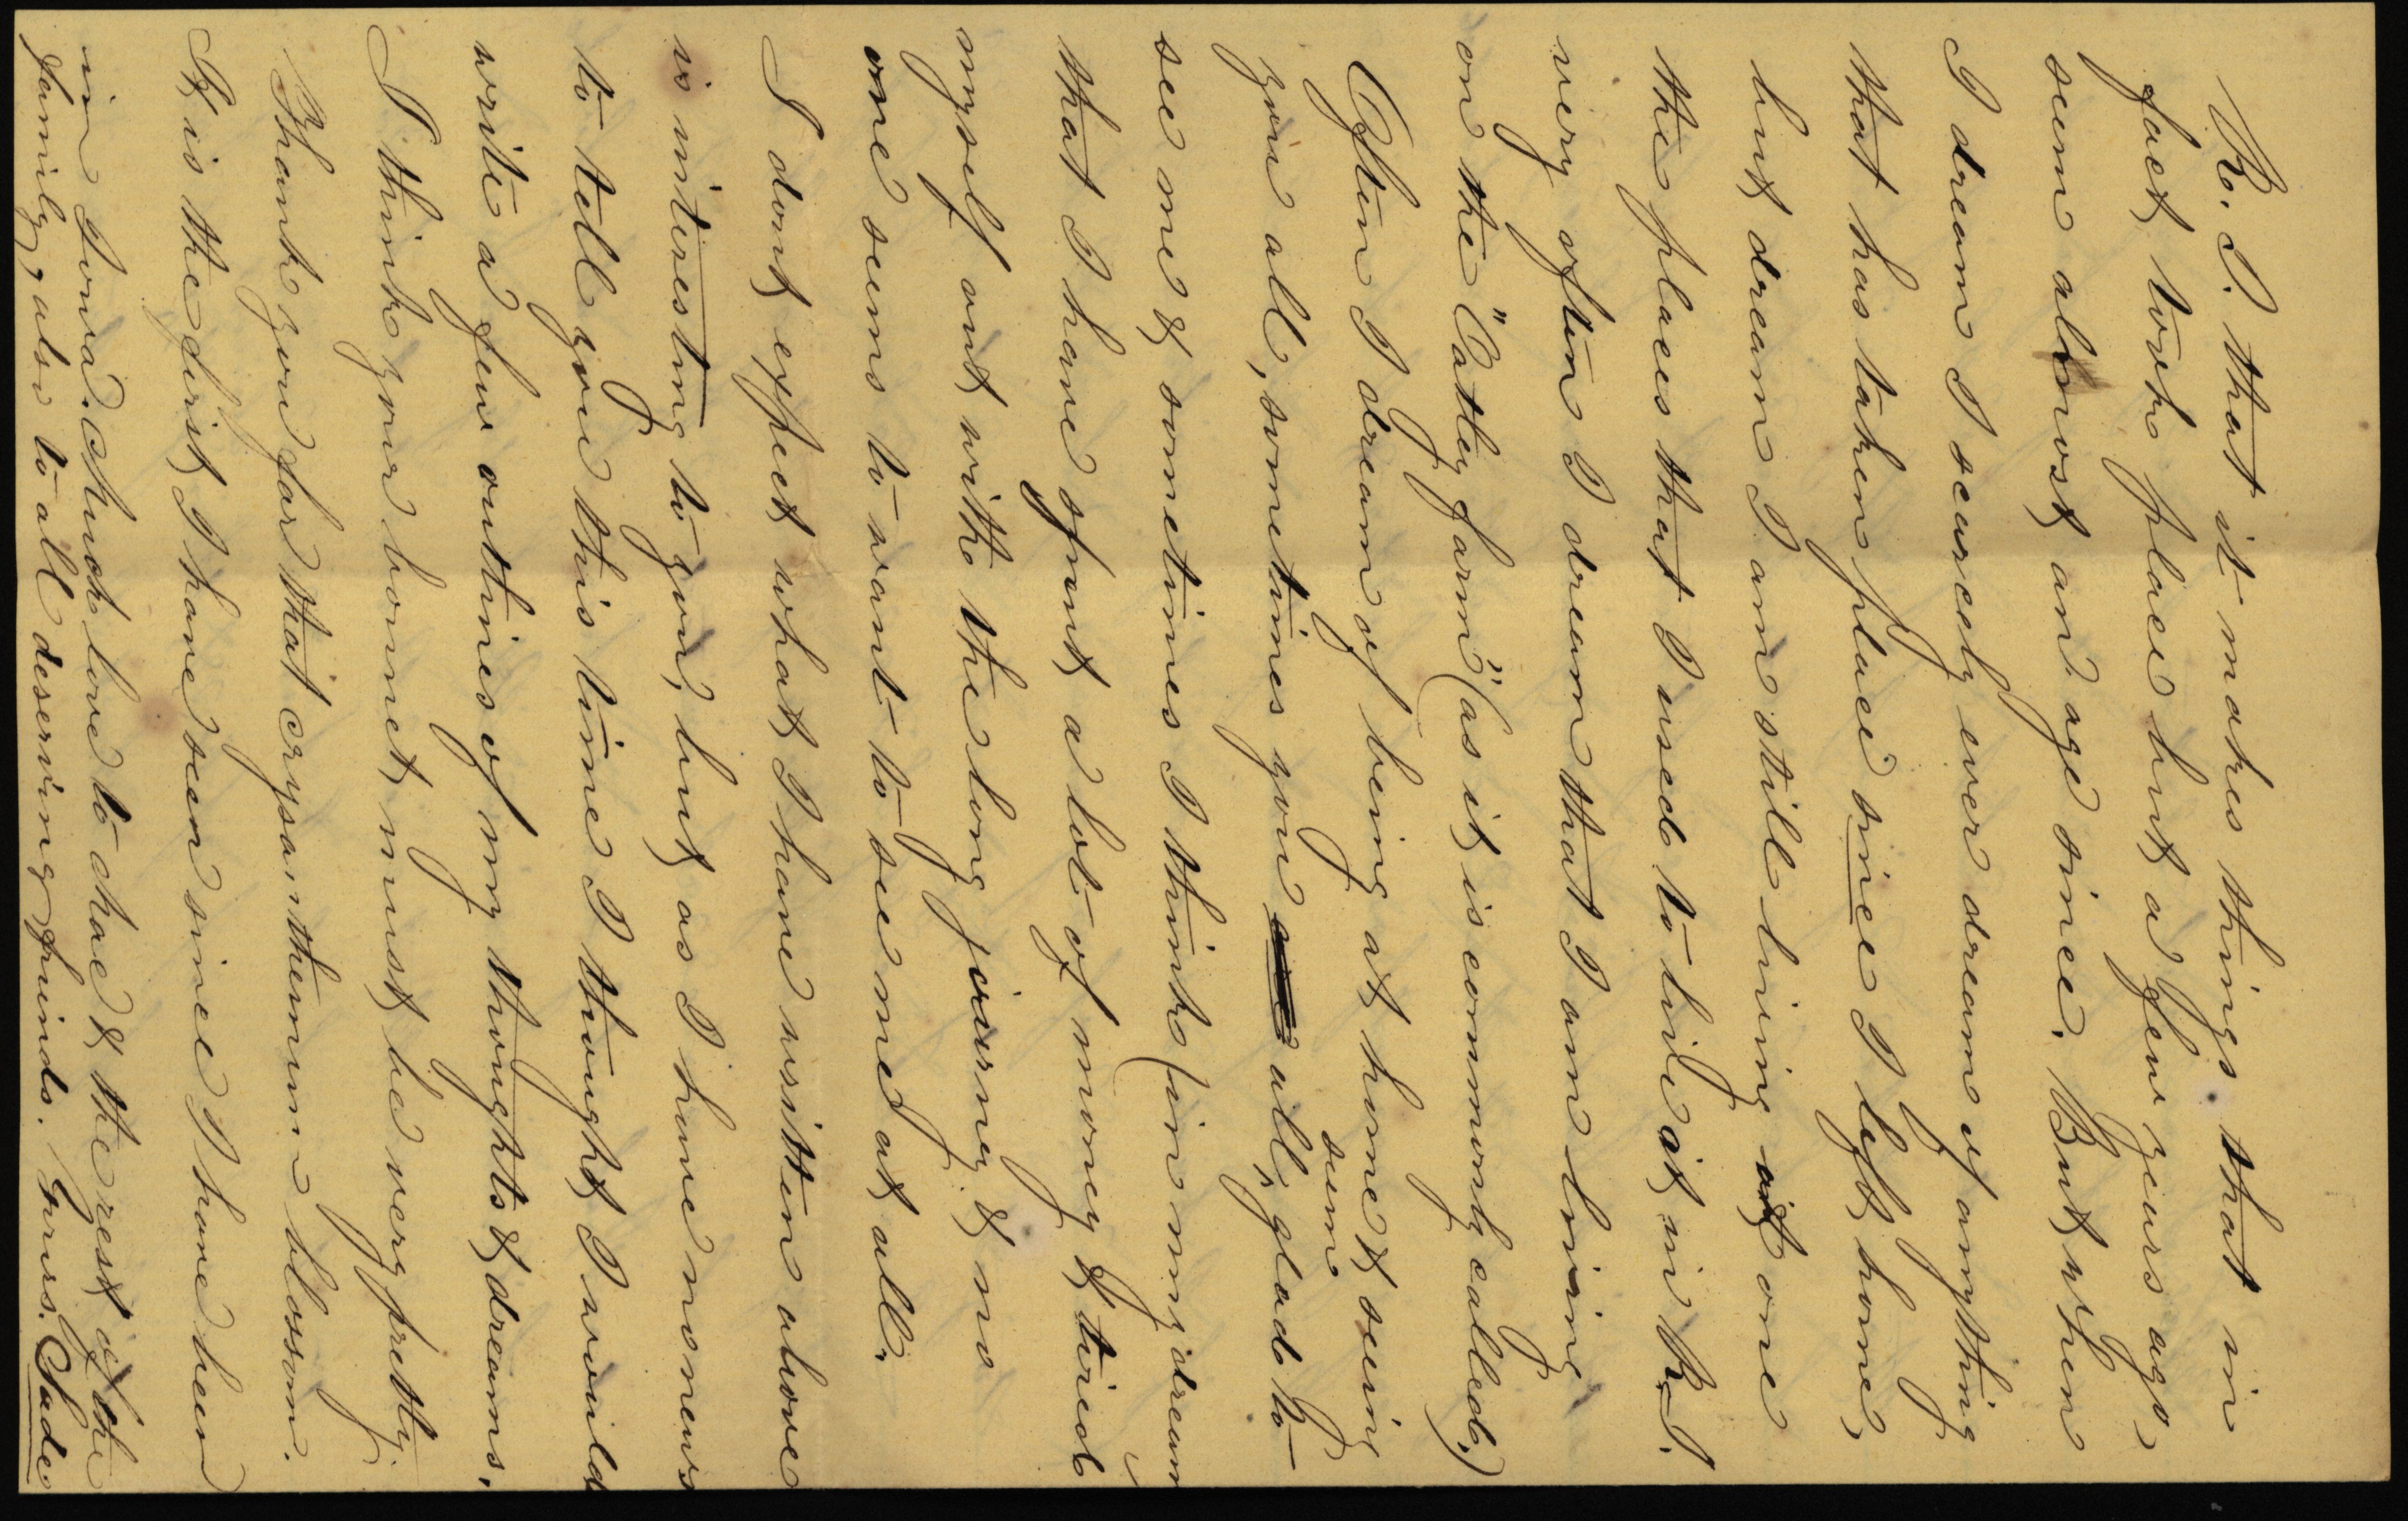 R. I. that it makes things that in
fact, took place but a few years ago,
seem almost an age since. But, when
I dream I scarcely ever dream of anything
that has taken place since I left home,
but dream I am still living at one
the places that I used to live at, in R. I.
very often I dream that I am living
on the "Catley farm" (as it is commonly called.)
Often I dream of being at home & seeing
you all, sometimes you all, seem glad to
see me & sometimes I think (in my dream)
that I have spent a lot of money & tired
myself out with the long journey & no
one seems to want to see me at all.
I dont expect what I have written above
is interesting to you, but as I have no news
to tell you this time I thought I would
write a few outlines of my thoughts & dreams.
I think your bonnet must be very pretty.
Thank you for that crysanthemum blossom.
It is the first I have seen since I have been
in Iowa. Much love to Mae & the rest of the
family, also to all deserving friends. Yours. Sade